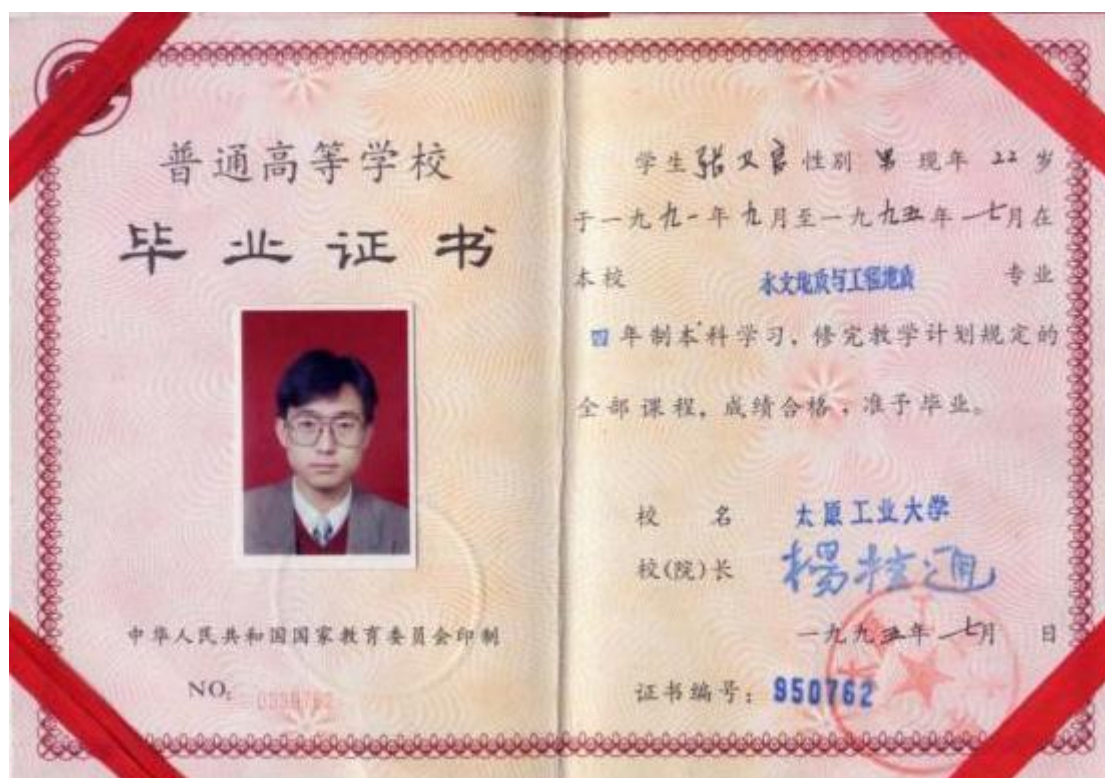 普通高等学校
毕业证书
中华人民共和国国家教育委员会印制
NO:
学生张又良性别 男 现年 22 岁
于一九九一年九月至一九九五年七月在
本校 水文地质与工程地质 专业
四年制本科学习,修完教学计划规定的
全部课程,成绩合格,准予毕业。
校 名 太原工业大学
校(院)长 杨桂通
一九九五年七月 日
证书编号:950762